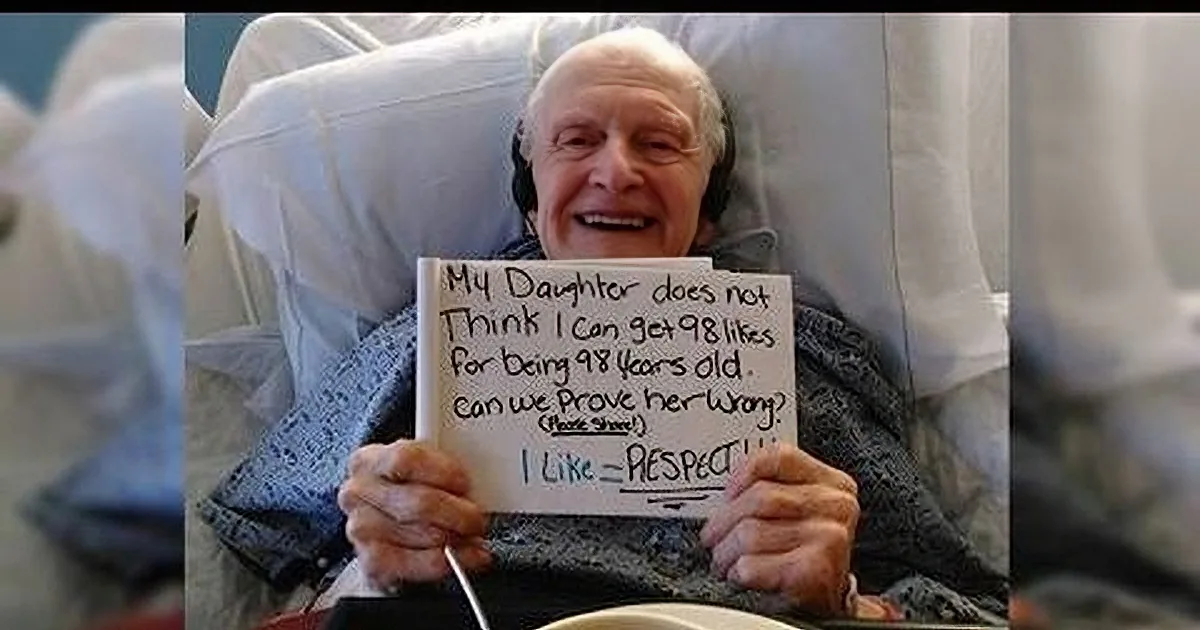 My Daughter does not
Think I Can get 98 likes
for being 98 years old.
Can we Prove her Wrong?
(Please Share!)
1 Like = RESPECT!!!